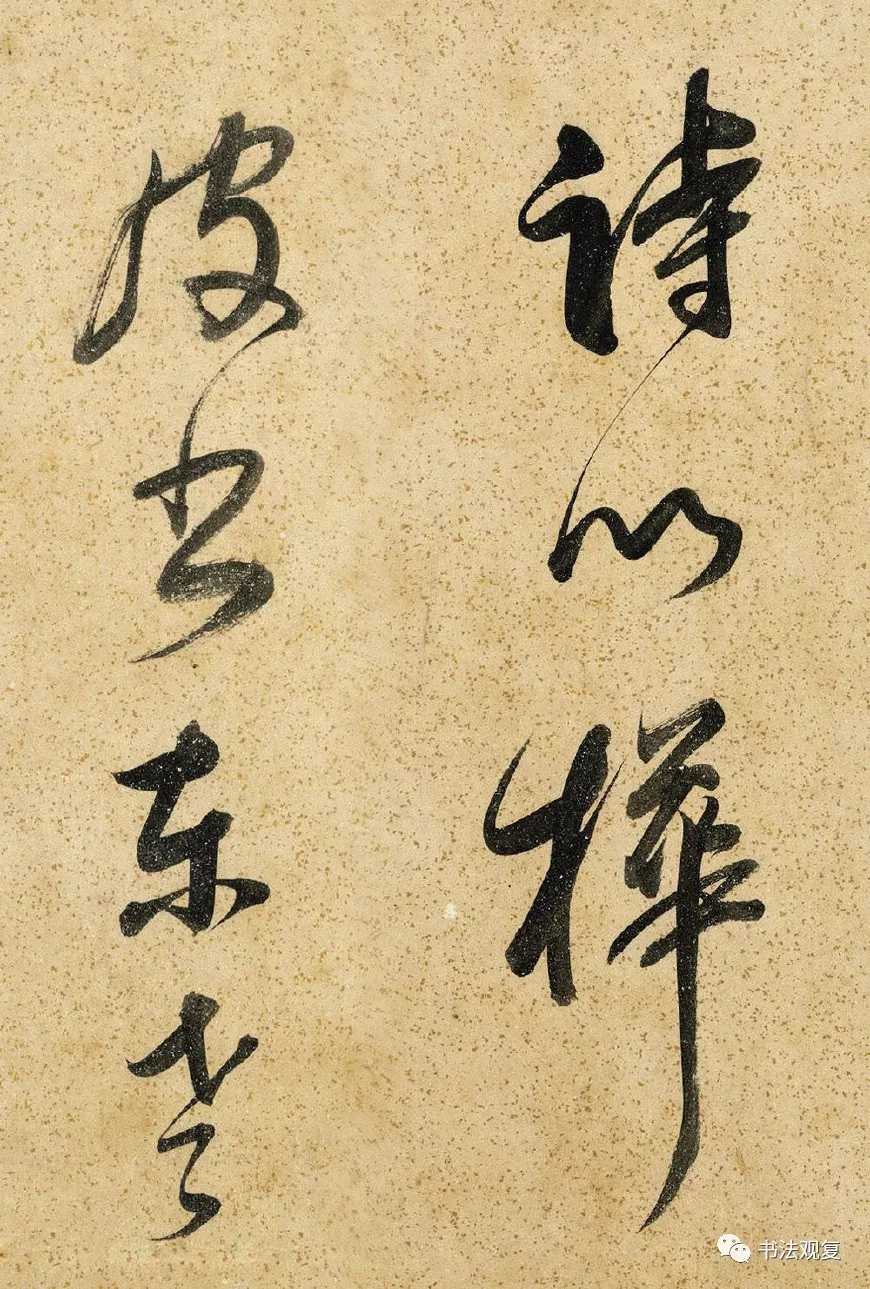 詩以樺
皮書東老
书法观复